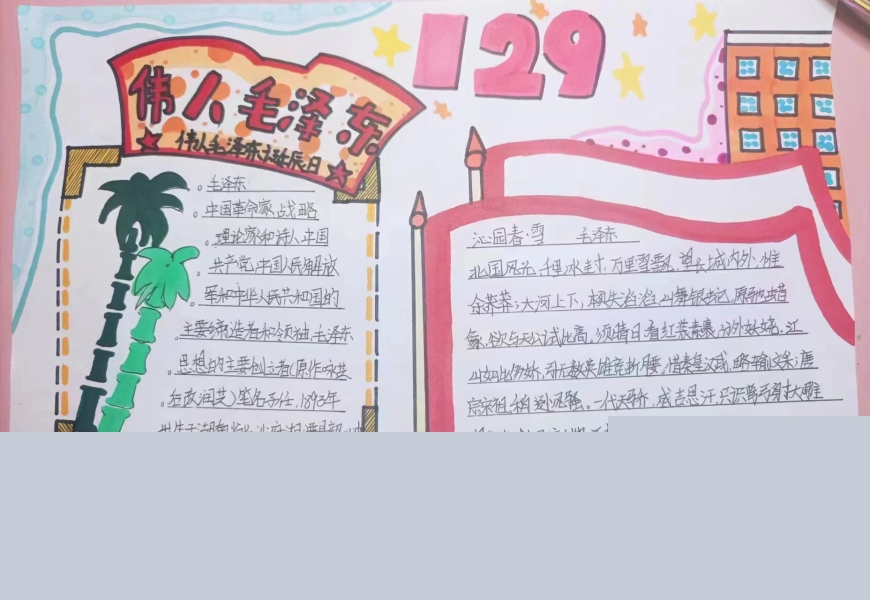 129
伟人毛泽东
伟人毛泽东诞辰日
毛泽东
中国革命家、战略
理论家和诗人中国
共产党、中国人民解放
军和中华人民共和国的
主要缔造者和领袖,毛泽东
思想的主要创立者(原作咏芝
笔名子任,1893年
沁园春·雪 毛泽东
北国风光,千里冰封,万里雪飘,望长城内外,惟
余莽莽;大河上下,顿失滔滔,山舞银蛇,原驰蜡
象,欲与天公试比高,须晴日,看红装素裹,分外妖娆,江
山如此多娇,引无数英雄竞折腰,惜秦皇汉武,略输文采;唐
宗宋祖,稍逊风骚。一代天骄,成吉思汗,只识弯弓射大雕